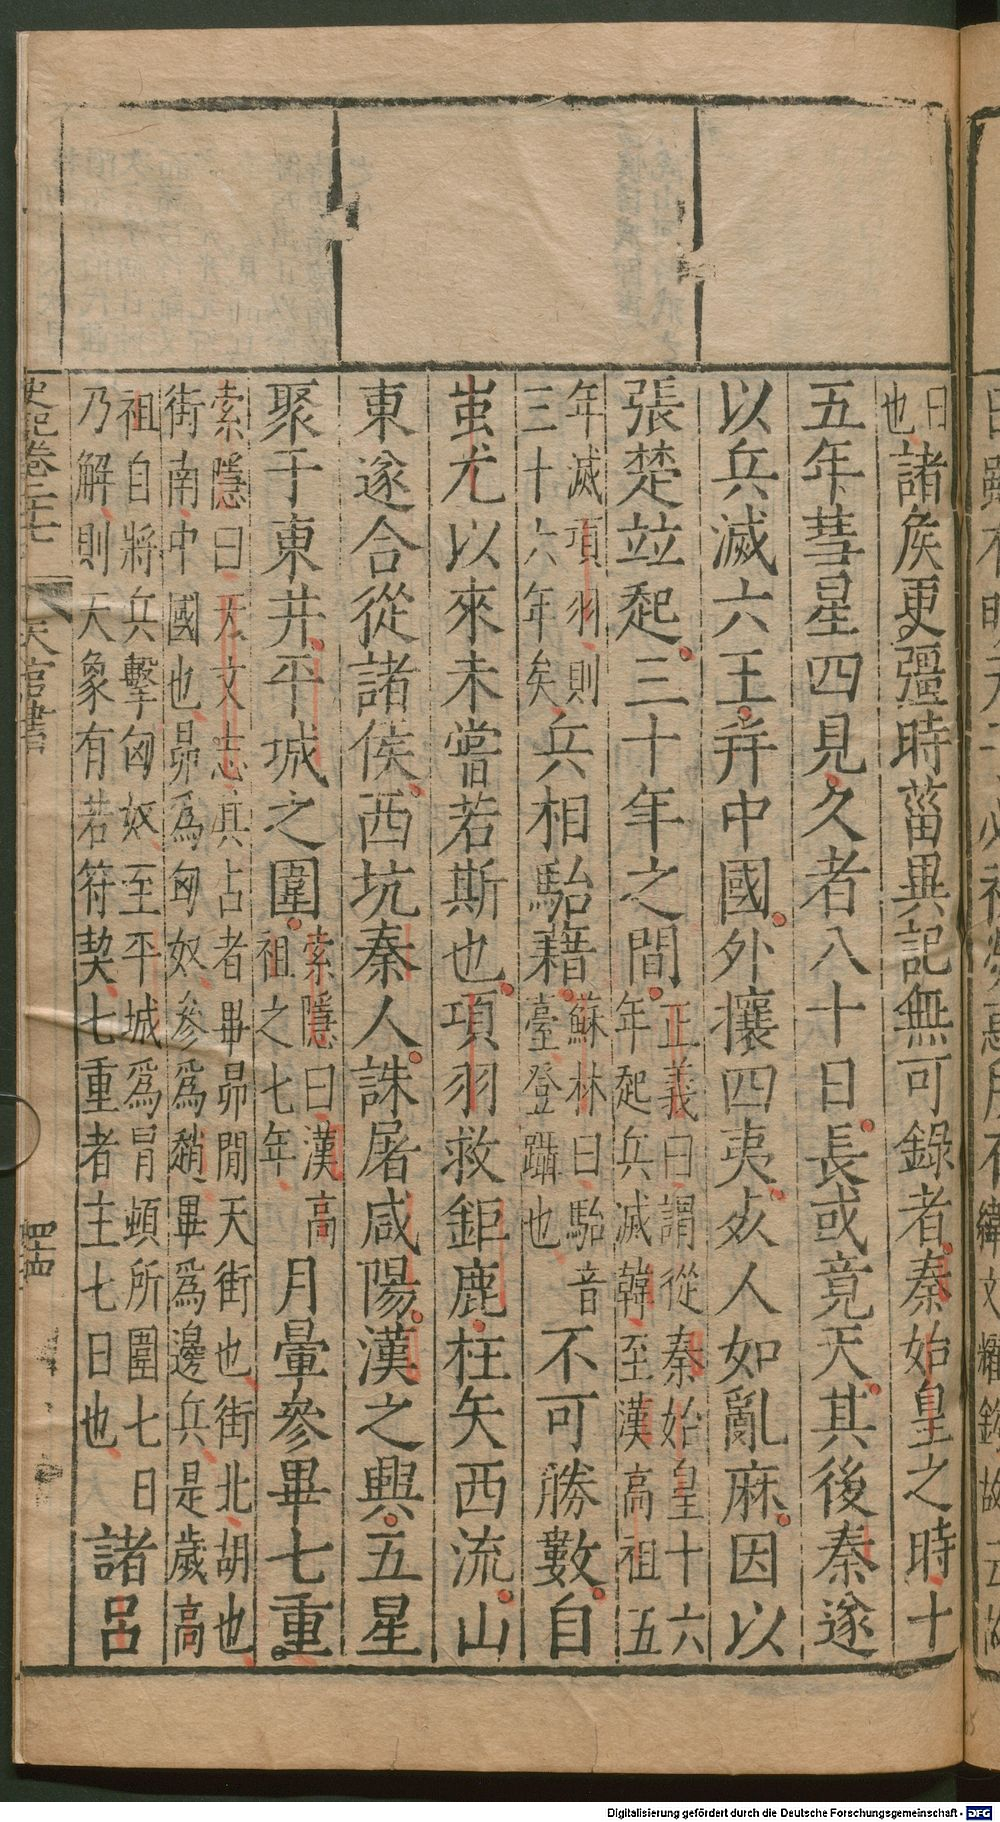 曰也諸矦更彊時菑異記無可錄者秦始皇之時十
五年彗星四見久者八十日長或竟天其後秦遂
以兵滅六王并中國外攘四夷死人如亂麻因以
張楚竝起三十年之間正義曰謂從秦始皇十六年起兵滅韓至漢高祖五
年滅項羽則三十六年矣兵相駘藉蘇林曰駘音臺登躡也不可勝數自
蚩尤以來未嘗若斯也項羽救鉅鹿枉矢西流山
東遂合從諸侯西坑秦人誅屠咸陽漢之興五星
聚于東井平城之圍索隱曰漢高祖之七年月暈參畢七重
索隱曰天文志其占者畢昴閒天街也街北胡也街南中國也昴爲匈奴參爲趙畢爲邊兵是歲高
祖自將兵擊匈奴至平城爲冒頓所圍七日乃解則天象有若符契七重者主七日也諸呂
史記卷二十七 天官書
Digitalisierung gefördert durch die Deutsche Forschungsgemeinschaft - DFG